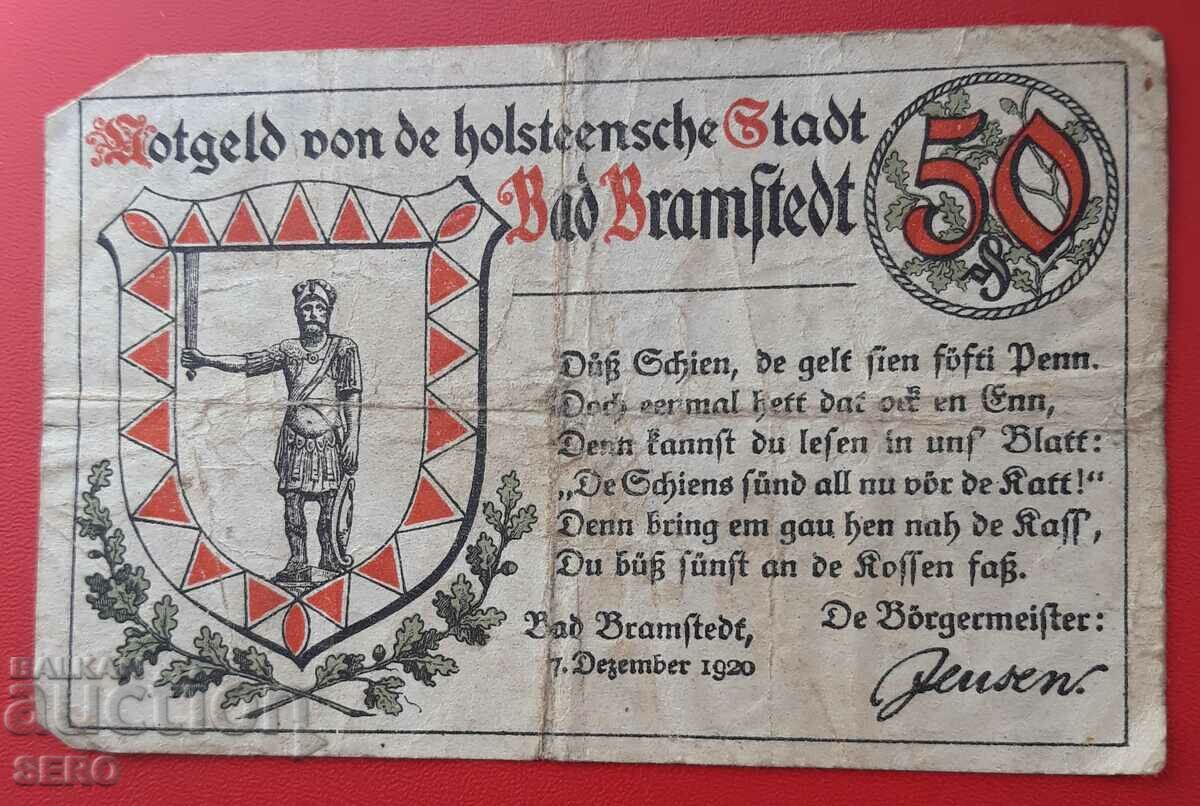 Notgeld von de holsteensche Stadt
Bad Bramstedt
50
₰
Düß Schien, de gelt sien föfti Penn.
Doch eermal hett dat ock en Enn,
Denn kannst du lesen in uns' Blatt:
„De Schiens sünd all nu vör de Katt!“
Denn bring em gau hen nah de Kass',
Du büß sünst an de Kossen faß.
Bad Bramstedt,
7. Dezember 1920
De Börgermeister:
Jensen.
BALKAN
auction
SERO